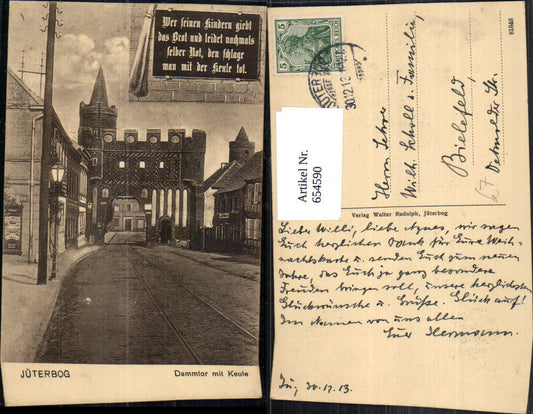 Wer seinen Kindern giebt
das Brot und leidet nachmals
selber Not, den schlage
man mit der Keule tot.
JÜTERBOG
Dammtor mit Keule
5
5
JÜTERBOG
30.12.13
Artikel Nr.
654590
81863
Herrn Lehrer
Wilh. Scholl u. Familie,
Bielefeld,
Detmolder Str.
67
Verlag Walter Rudolph, Jüterbog
Liebe Willi, liebe Agnes, wir sagen
Euch herzlichen Dank für Eure Weih-
nachtskarte u. senden Euch zum neuen
Jahre, das Euch ja ganz besondere
Freuden bringen soll, unsere herzlichsten
Glückwünsche u. Grüße. Glück auf!
Im Namen von uns allen
Euer Hermann.
Jü, 30.12.13.